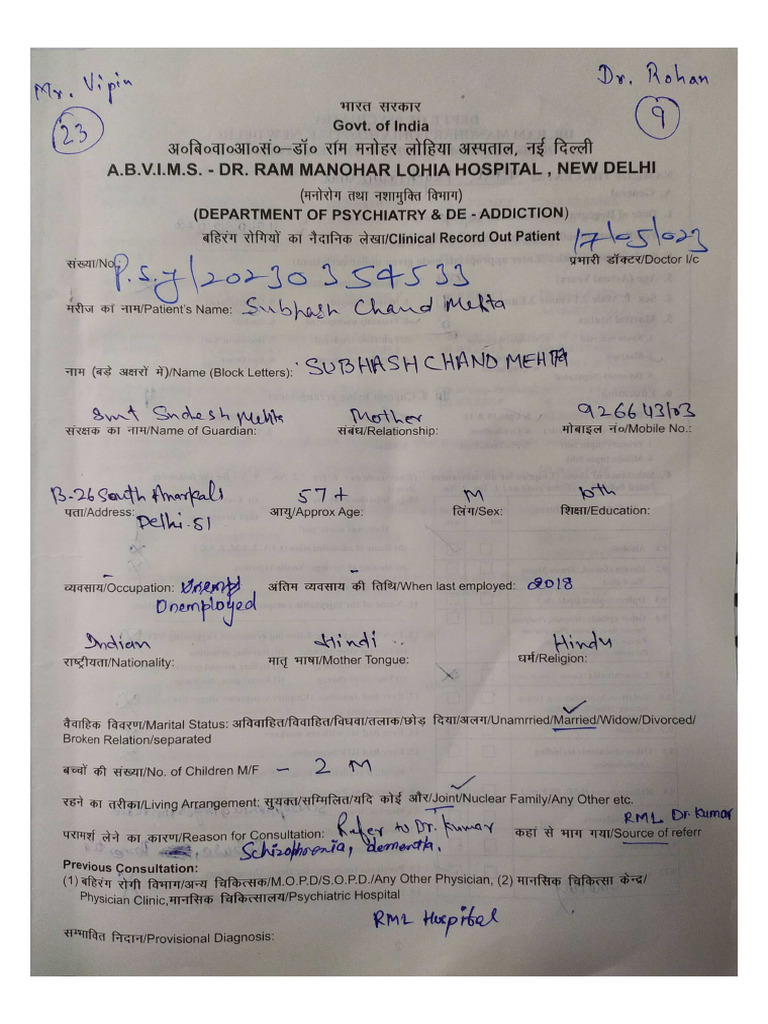 Mr. Vipin
Dr. Rohan
23
9
भारत सरकार
Govt. of India
अ०बि०वा०आ०सं०–डॉ० राम मनोहर लोहिया अस्पताल, नई दिल्ली
A.B.V.I.M.S. - DR. RAM MANOHAR LOHIA HOSPITAL , NEW DELHI
(मनोरोग तथा नशामुक्ति विभाग)
(DEPARTMENT OF PSYCHIATRY & DE - ADDICTION)
बहिरंग रोगियों का नैदानिक लेखा/Clinical Record Out Patient 17/05/023
संख्या/No.: P.s.y/20230354533 प्रभारी डॉक्टर/Doctor I/c
मरीज का नाम/Patient's Name: Subhash Chand Mehta
नाम (बड़े अक्षरों में)/Name (Block Letters): SUBHASH CHAND MEHTA
Smt Sudesh Mehta Mother
संरक्षक का नाम/Name of Guardian: संबंध/Relationship: मोबाइल नं०/Mobile No.:
B-26 South Anarkali 57+ M 10th
पता/Address: आयु/Approx Age: लिंग/Sex: शिक्षा/Education:
Delhi-51
व्यवसाय/Occupation: अंतिम व्यवसाय की तिथि/When last employed: 2018
Unemployed
Indian Hindi Hindu
राष्ट्रीयता/Nationality: मातृ भाषा/Mother Tongue: धर्म/Religion:
वैवाहिक विवरण/Marital Status: अविवाहित/विवाहित/विधवा/तलाक/छोड़ दिया/अलग/Unamrried/Married/Widow/Divorced/
Broken Relation/separated
बच्चों की संख्या/No. of Children M/F - 2 M
रहने का तरीका/Living Arrangement: सुयक्त/सम्मिलित/यदि कोई और/Joint/Nuclear Family/Any Other etc.
RML Dr. Kumar
परामर्श लेने का कारण/Reason for Consultation: Refer to Dr. Kumar कहां से भाग गया/Source of referr
Schizophrenia, dementia.
Previous Consultation:
(1) बहिरंग रोगी विभाग/अन्य चिकित्सक/M.O.P.D/S.O.P.D./Any Other Physician, (2) मानसिक चिकित्सा केन्द्र/
Physician Clinic,मानसिक चिकित्सालय/Psychiatric Hospital
RML Hospital
सम्भावित निदान/Provisional Diagnosis: